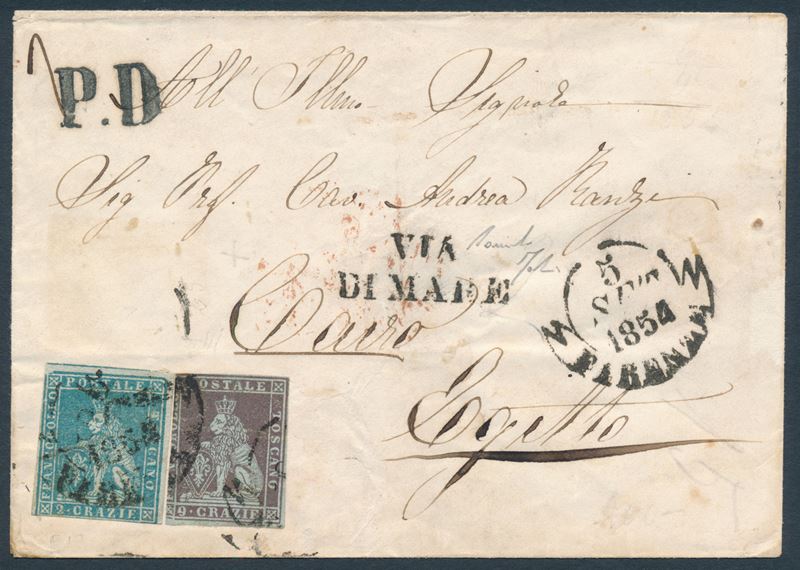 P.D
All' Illmo Signore
Sig Prof. Cav. Andrea
VIA
DI MARE
5
SET
1854
FIRENZE
Cairo
Egitto
POSTALE
FRANCOBOLLO
TOSCANO
2 · CRAZIE
POSTALE
TOSCANO
9 · CRAZIE